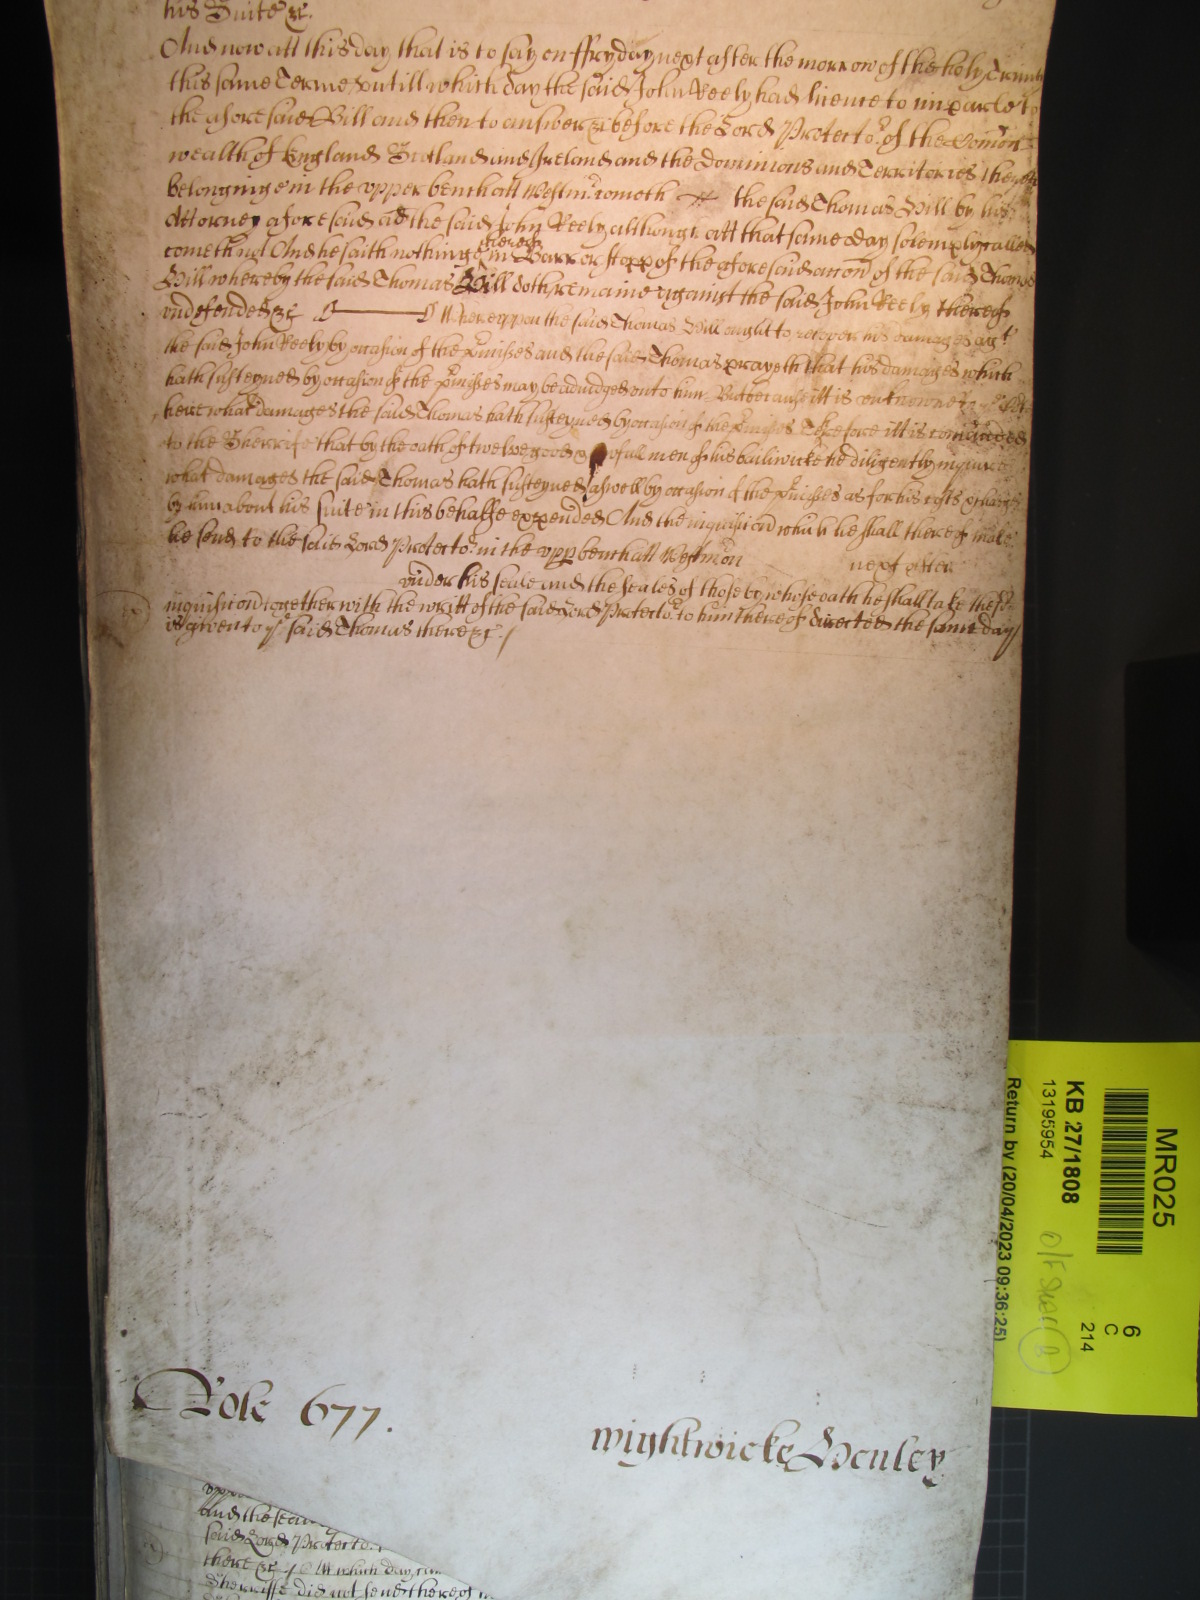 his Suite &c.
And now att this day that is to say on ffryday next after the morrow of the holy Trinity
this same Terme untill which day the said John Keely had licence to imparle to
the aforesaid Bill and then to answer &c before the Lord Protector of the Common
wealth of England Scotland and Ireland and the Dominions and Territories thereto
belonginge in the upper bench att Westmr cometh the said Thomas Bill by his
Attorney aforesaid and the said John Keely although att that same day solemply called
cometh not And he saith nothing thereof in Barr or stopp of the aforesaid accon of the said Thomas
Bill whereby the said Thomas Bill doth remaine against the said John Keely thereof
undefended &c Whereuppon the said Thomas Bill ought to recover his damages agt
the said John Keely by occasion of the pmisses and the said Thomas prayeth that his damages which
hath susteyned by occasion of the pmisses may be adiudged unto him But because itt is unknowne to ye
here what damages the said Thomas hath susteyned by occasion of the pmisses Therefore itt is comanded
to the Sherriffe that by the oath of twelve good & lawfull men of his bailiwicke he diligently inquire
what damages the said Thomas hath susteyned aswell by occasion of the pmisses as for his costs & charges
by him about his suite in this behalfe expended And the inquisicon which he shall thereof make
he send to the said Lord Protector in the upp bench att Westmon next after
under his seale and the seales of those by whose oath he shall take the sd
inquisicon together with the writt of the said Lord Protector to him thereof directed the same day
is given to ye said Thomas there &c.
Role 677.
Wightwicke Henley
and the
said Lord Protector
there &c Att which day
Sherriffe did not send thereof
MR025
KB 27/1808
13195954
6
C
214
Return by (20/04/2023 09:36:25)